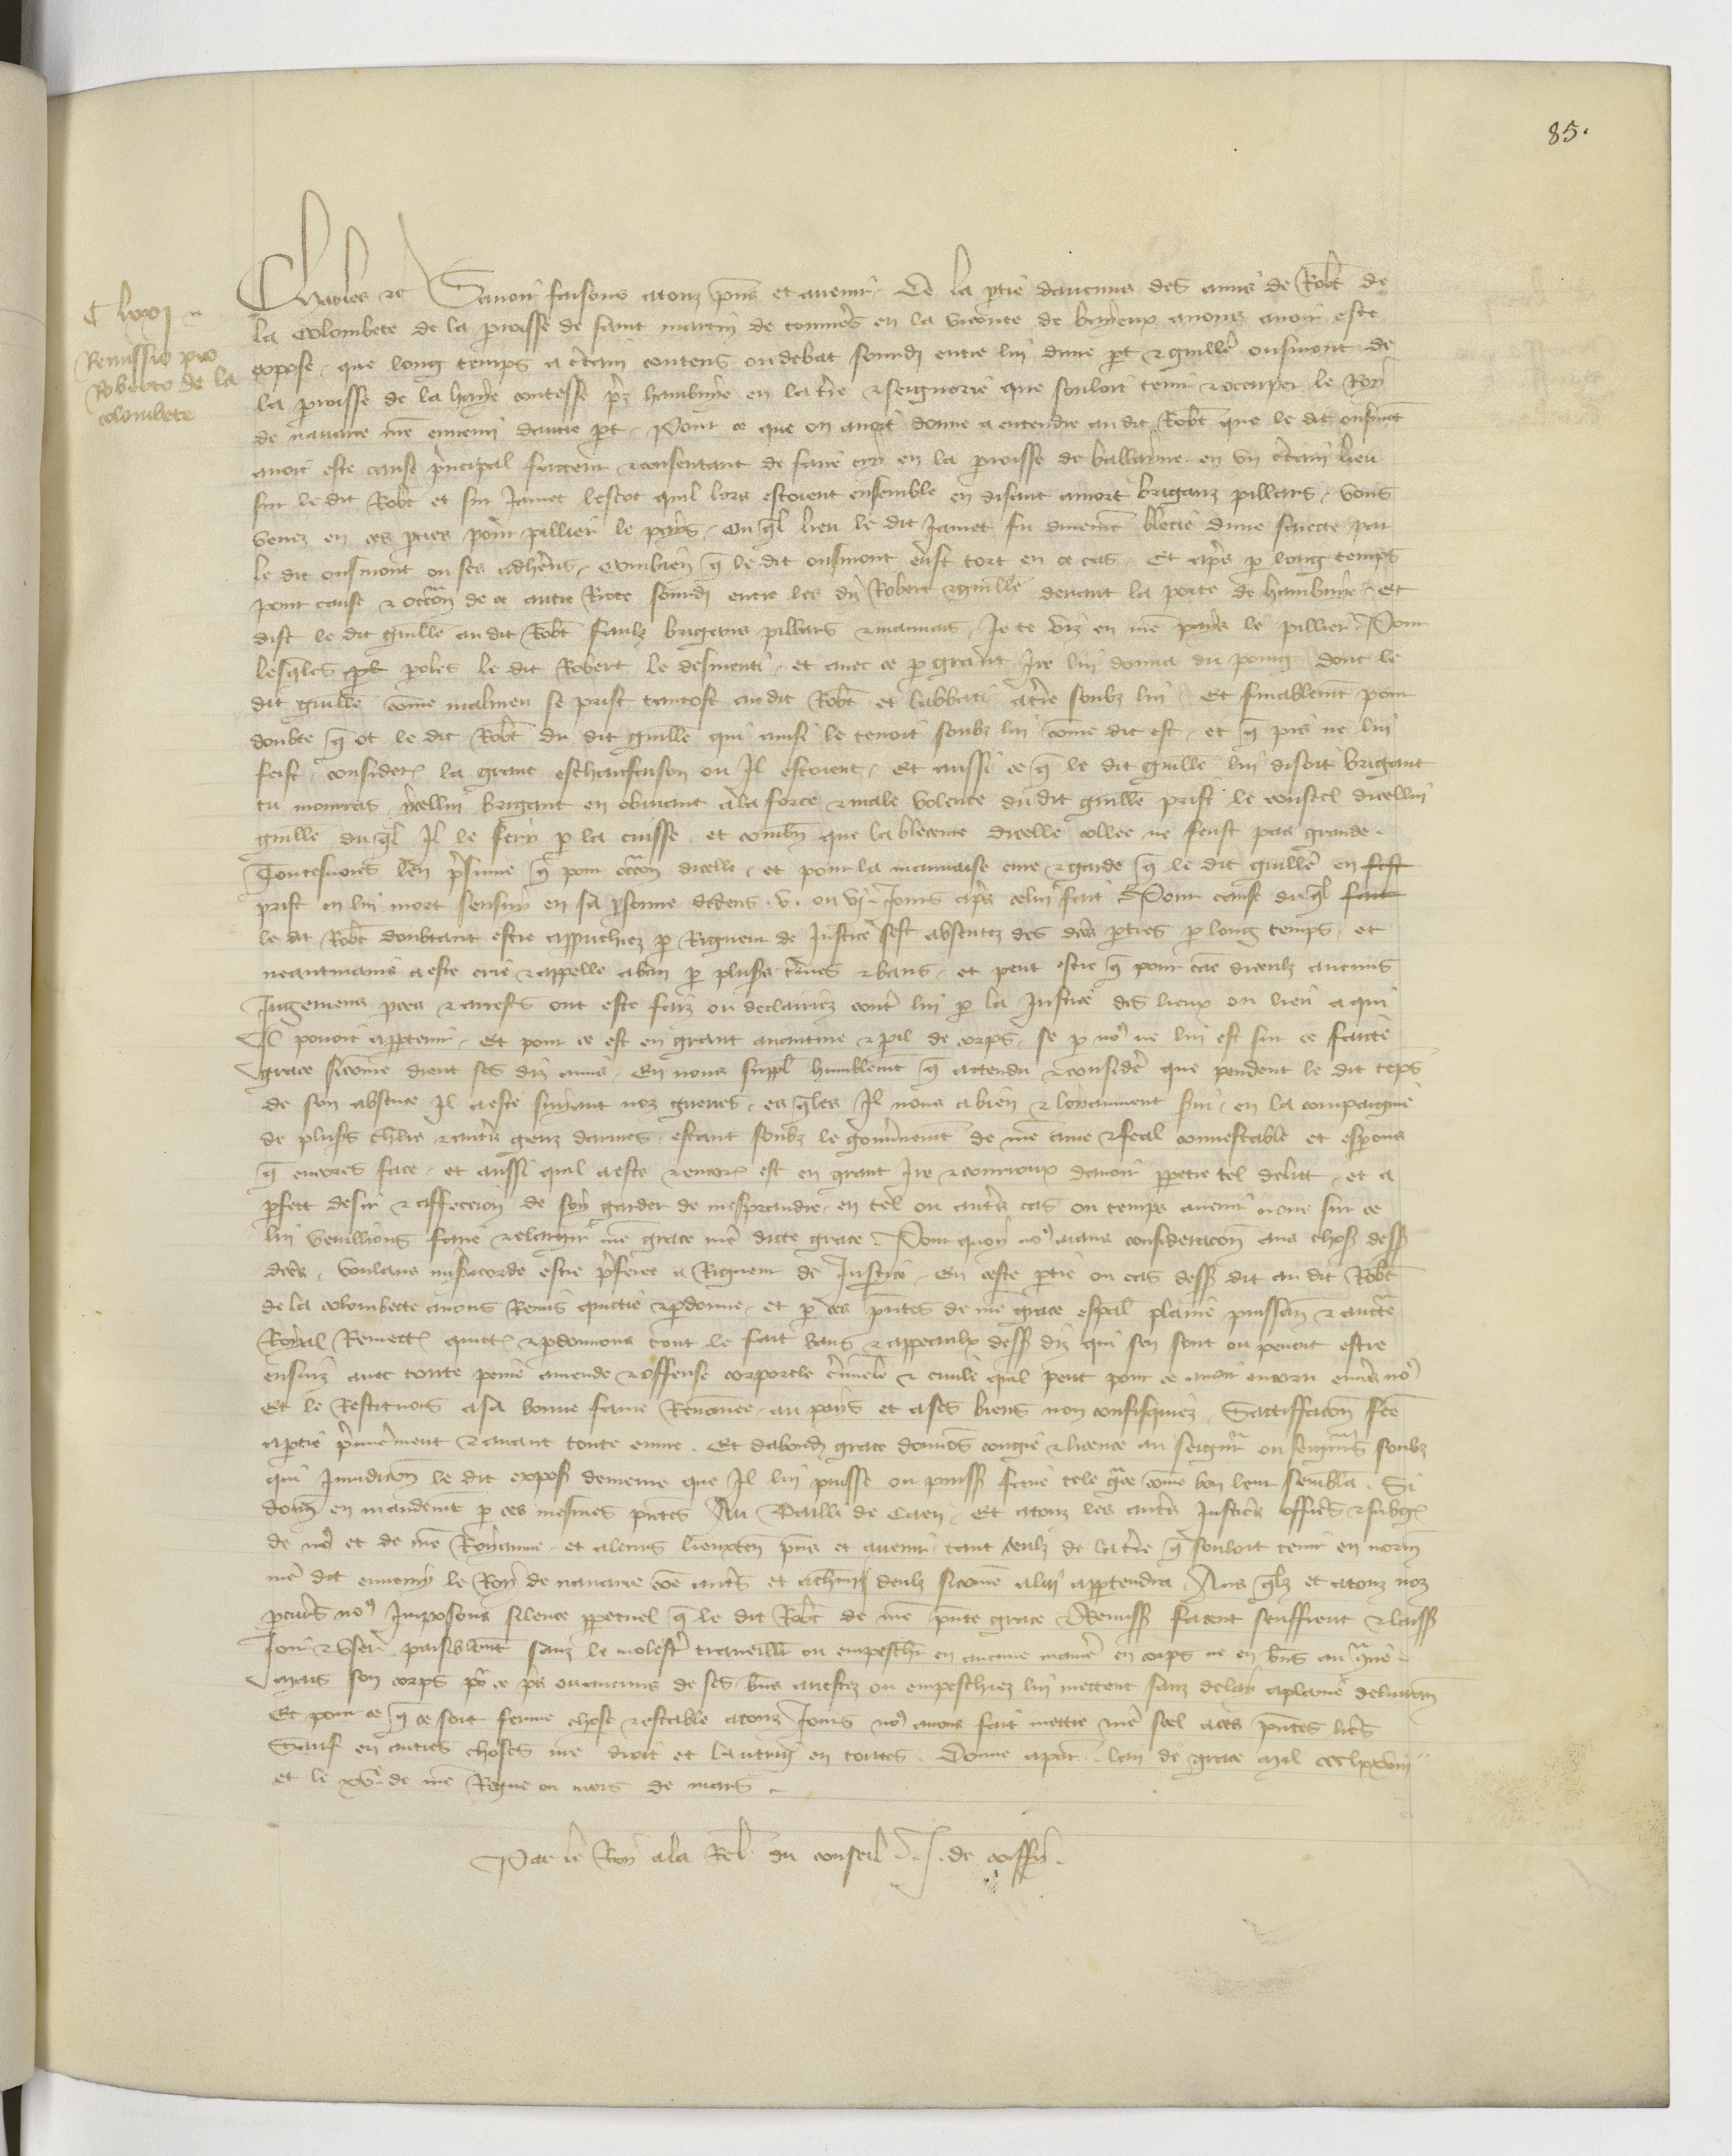 85.
C lxxi
Remissio pro
Roberto de la
colombete
Charles &c Savoir faisons a touz pns et avenir De la ptie daucuns des amis de Robt de
la Colombete de la proisse de saint martin de en la viconte de baieux avons avoir este
expose que long temps a ctain contens ou debat sourdi entre lui dune pt & guille ousmont de
la proisse de la haye contesse prez hambuye en la tre & seignorie que souloit tenir & occuper le Roy
de navarre nre ennemi dautre pt Pour ce que on avoit donne a entendre au dit Robt que le dit ousmont
avoit este cause principal & consentant de faire cry en la proisse de en un ctain lieu
sur le dit Robt et sur Jamet lescot quil lors estoient ensemble en disant a mort briganz pillars vous
venez en ces pties pour pillier le pays ou ql lieu le dit Jamet fu durement blecie dune saiecte par
le dit ousmont ou ses adherns combien q le dit ousmont eust tort en ce cas Et apres p long temps
pour cause & occon de ce autre Riote sourdi entre les diz Robert & guille devant la porte de hambuye Et
dist le dit guille au dit Robt faulz brigans pillars & mauvais Je te viz en nre pays le pillier Pour
lesqles poles le dit Robert le desmenti et avec ce p grant Ire lui donna du poing dont le
dit guille come malmeu se prist tantost au dit Robt et labbati a tre soubz lui Et finablemt pour
doubte q ot le dit Robt du dit guille qui ainsi le tenoit soubz lui come dit est et q pis ne lui
feist consider la grant eschaufaison ou Il estoient Et aussi ce q le dit guille lui disoit brigant
tu mourras icellui brigant en obviant a la force & male volente du dit guille prist le coustel dicellui
guille du ql Il le fery p la cuisse et combn que la bleceure dicelle collee ne feust pas grande
Toutesvoies len presume q pour occon dicelle et pour la mauvaise cure & garde q le dit guille en fist
prist en lui mort sensuy en sa psonne dedens v ou vi Jours apres celui fait Pour cause du ql fait
le dit Robt doubtant estre approchiez p Rigueur de Justice sest absentez des dces pties p long temps et
neantmains a este crie & appelle a ban p plusrs & bans et peut estre q pour cause diceulz aucuns
Jugemens pces & arrests ont este faiz ou declairiez contre lui p la Justice des lieux ou lieu a qui
Il povoit apptenir Et pour ce est en grant aventure & pil de corps se p nos ne lui est sur ce faicte
grace sicome dient ses diz amis En nous suppl humblemt q attendu & consider que pendent le dit teps
de son absence Il a este suivant noz guerres es qles Il nous a bien & loyaument sui en la compaignie
de plusrs chlrs & autrs genz darmes estant soubz le gouvnemt de nre ame & feal connestable et esperons
q encores face et aussi quil a este & encor est en grant Ire & courroux davoir ppetre tel delict et a
pfect desir & affeccion de soy garder de mesprandre en tel ou autrs cas ou temps avenir nous sur ce
lui veuillions faire & elargir nre grace nre dicte grace Pour quoy nos aians consideracon aus choses dess
dces voulans misicorde estre preferee a Rigueur de Justice En ceste ptie ou cas dess dit au dit Robt
de la colombete avons Remis quictie & pdonne et p ces pntes de nre grace espal plaine puissan & aucte
Royal Remect quict & pdonnons tout le fait bans & appeaulx dess diz qui sen sont ou peuent estre
ensuiz avec toute peine amende & offense corporele criminele & civile quil peut pour ce avoir encoru envs nos
Et le Restituons a sa bonne fame Renomee au pays et a ses biens non confisquiez Sattiffacon fce
a ptie premierement & avant toute euvre Et dabond grace donons congie & licence au seigneur ou seigneurs soubz
qui Juridicon le dit expos demeure que Il lui puisse ou puissent faire tele grace come bon leur semblera Si
donn en mandemt p ces mesmes pntes Au Bailli de Caen Et a touz les autrs Justicrs officrs & subgiz
de nos et de nre Royaume et a leurs lieuxten pns et avenir tant ceulz de la tre q souloit tenir en norm
nre dit ennemy le Roy de navarre coe autrs et a chascun deulz sicome a lui apptendra Aus qlz et a touz noz
pcurs nos Imposons silence ppetuel q le dit Robt de nre pnte grace Remiss facent seuffrent & laissent
Jouir & user paisiblemt sanz le molester traveillr ou empeschr en aucune manre en corps ne en bns au contraire
mais son corps pour ce ps ou aucuns de ses bns arrestez ou empeschiez lui mettent sanz delay a plaine delivran
Et pour ce q ce soit ferme chose & estable a touz Jours nos avons fait mettre nre seel a ces pntes lres
Sauf en autres choses nre droit et lautruy en toutes Donne a par lan de grace mil ccclxxviii
et le xve de nre Regne ou mois de mars
Par le Roy a la Rel du conseil J. de coiffy